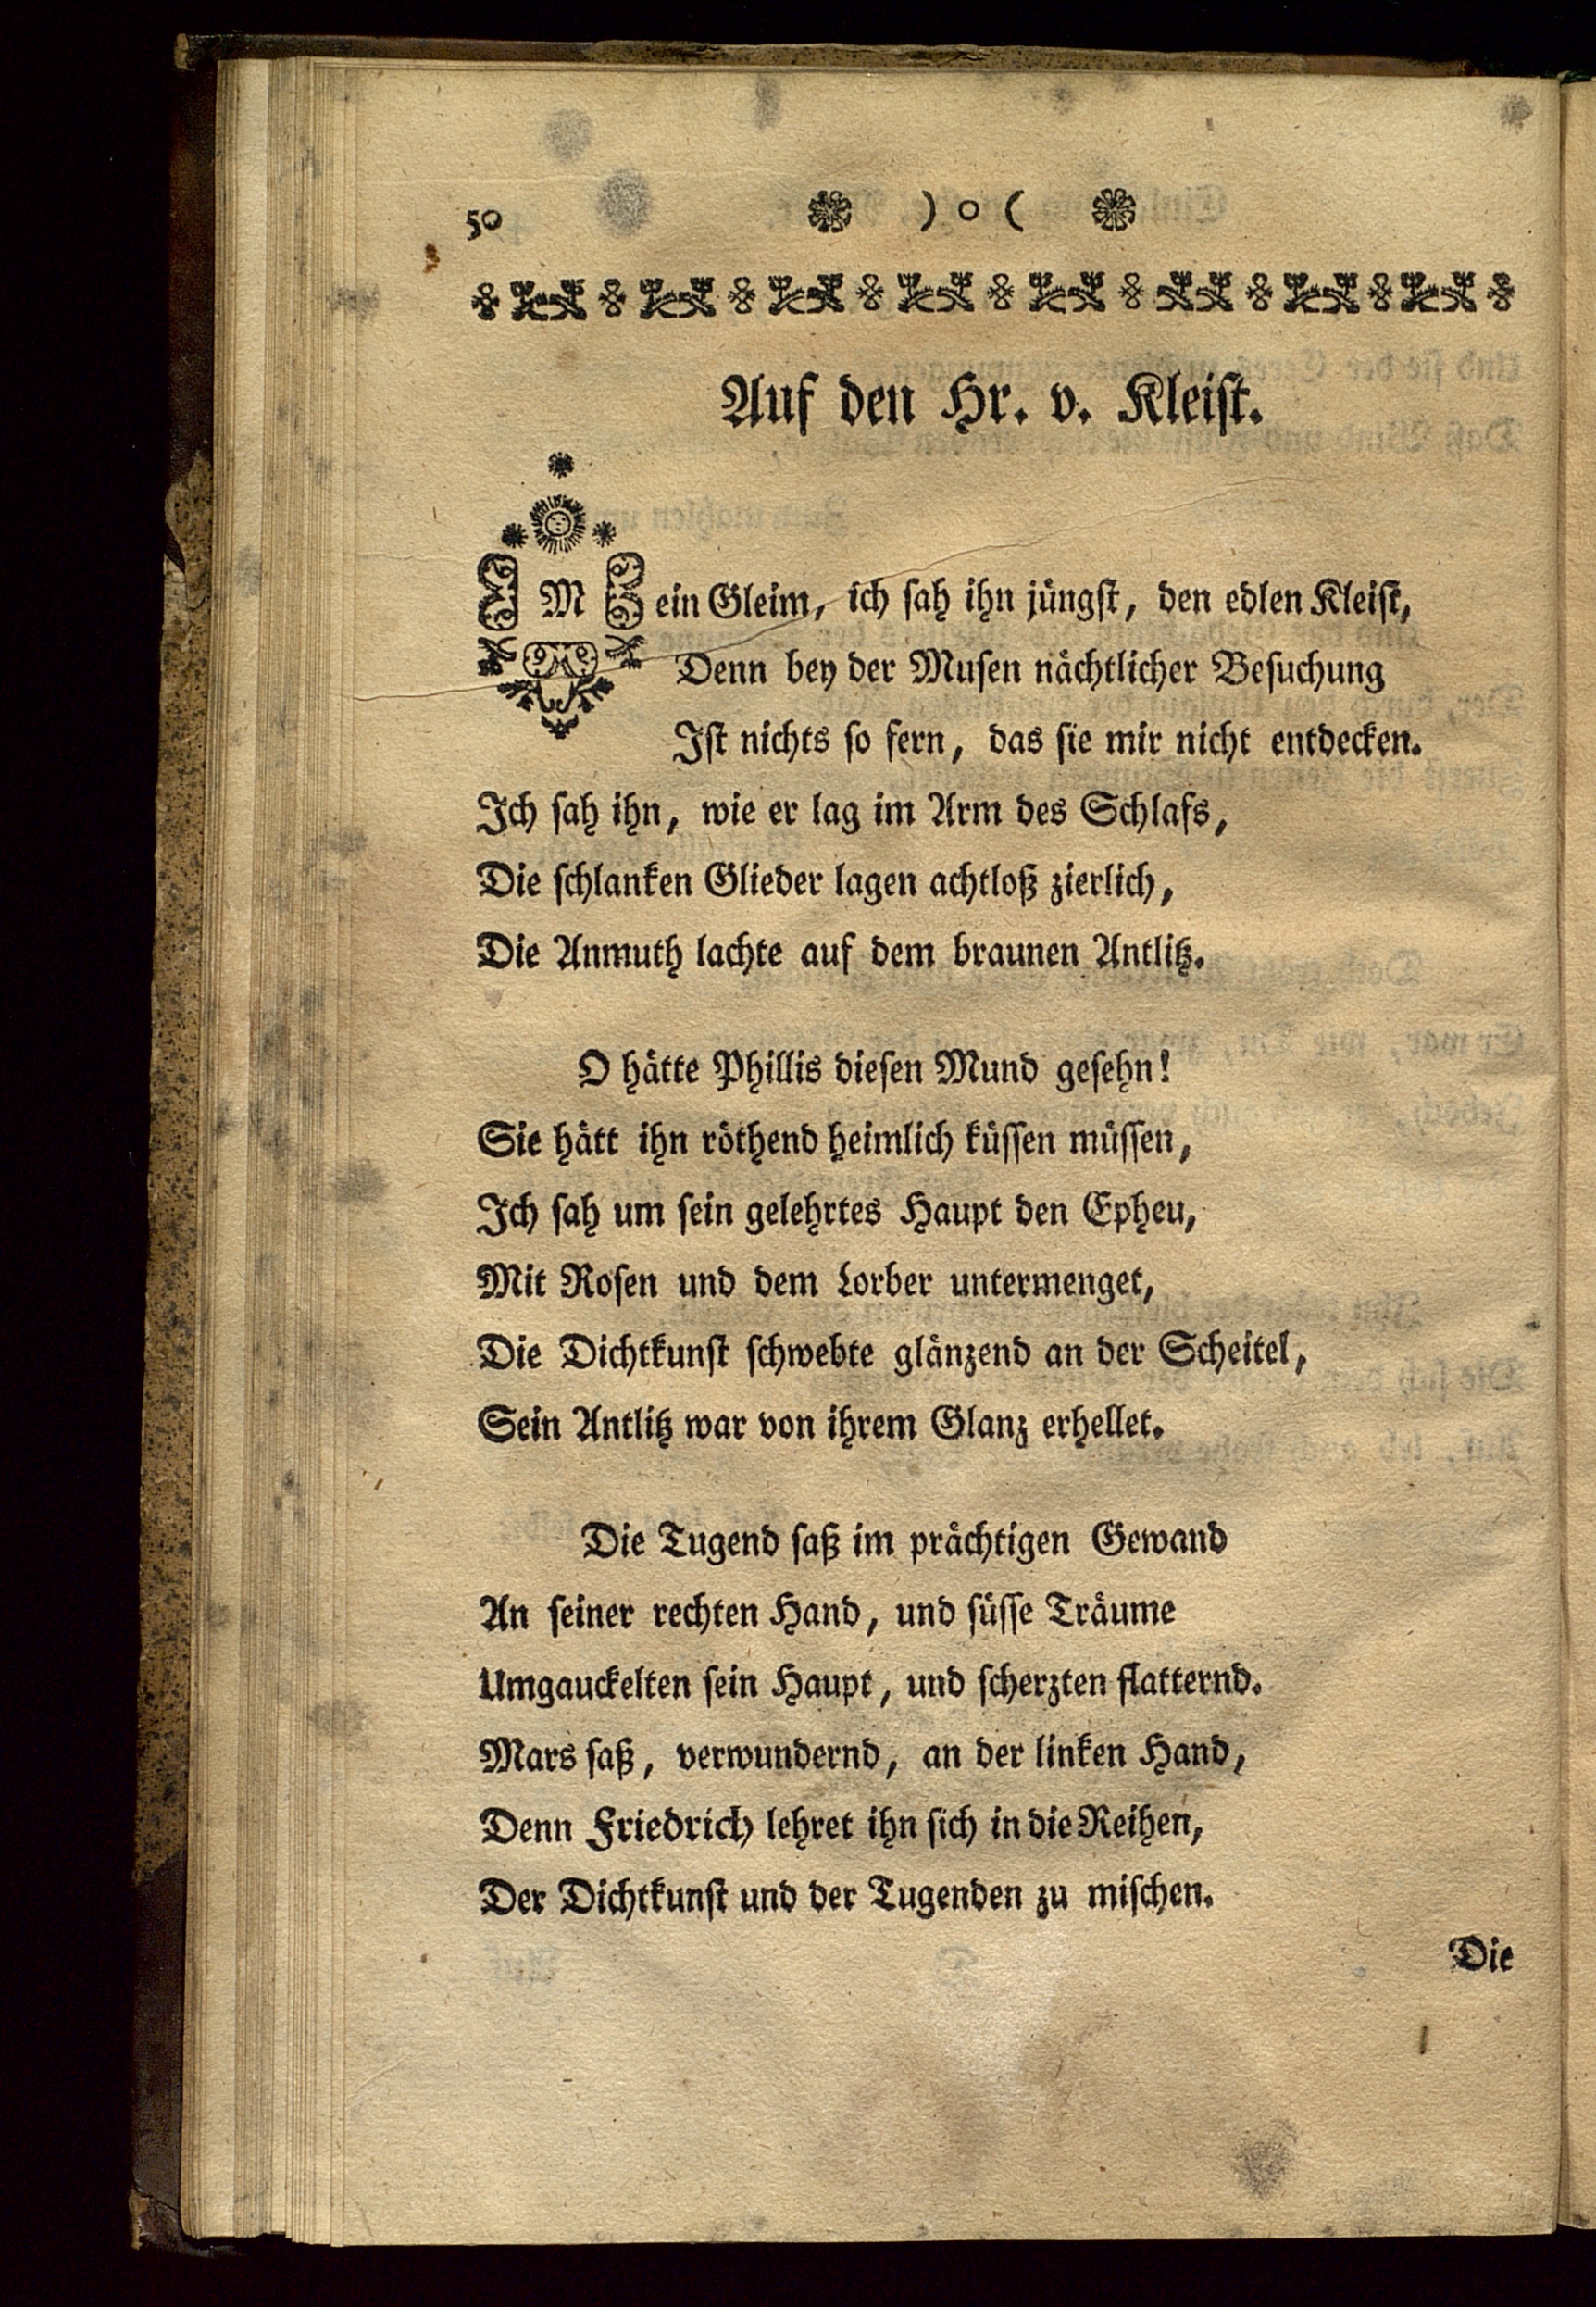 50 ) o (
Auf den Hr. v. Kleiſt.
Mein Gleim, ich ſah ihn jüngſt, den edlen Kleiſt,
Denn bey der Muſen nächtlicher Beſuchung
Iſt nichts ſo fern, das ſie mir nicht entdecken.
Ich ſah ihn, wie er lag im Arm des Schlafs,
Die ſchlanken Glieder lagen achtloß zierlich,
Die Anmuth lachte auf dem braunen Antlitz.
O hätte Phillis dieſen Mund geſehn!
Sie hätt ihn röthend heimlich küſſen müſſen,
Ich ſah um ſein gelehrtes Haupt den Epheu,
Mit Roſen und dem Lorber untermenget,
Die Dichtkunſt ſchwebte glänzend an der Scheitel,
Sein Antlitz war von ihrem Glanz erhellet.
Die Tugend ſaß im prächtigen Gewand
An ſeiner rechten Hand, und ſüſſe Träume
Umgauckelten ſein Haupt, und ſcherzten flatternd.
Mars ſaß, verwundernd, an der linken Hand,
Denn Friedrich lehret ihn ſich in die Reihen,
Der Dichtkunſt und der Tugenden zu miſchen.
Die